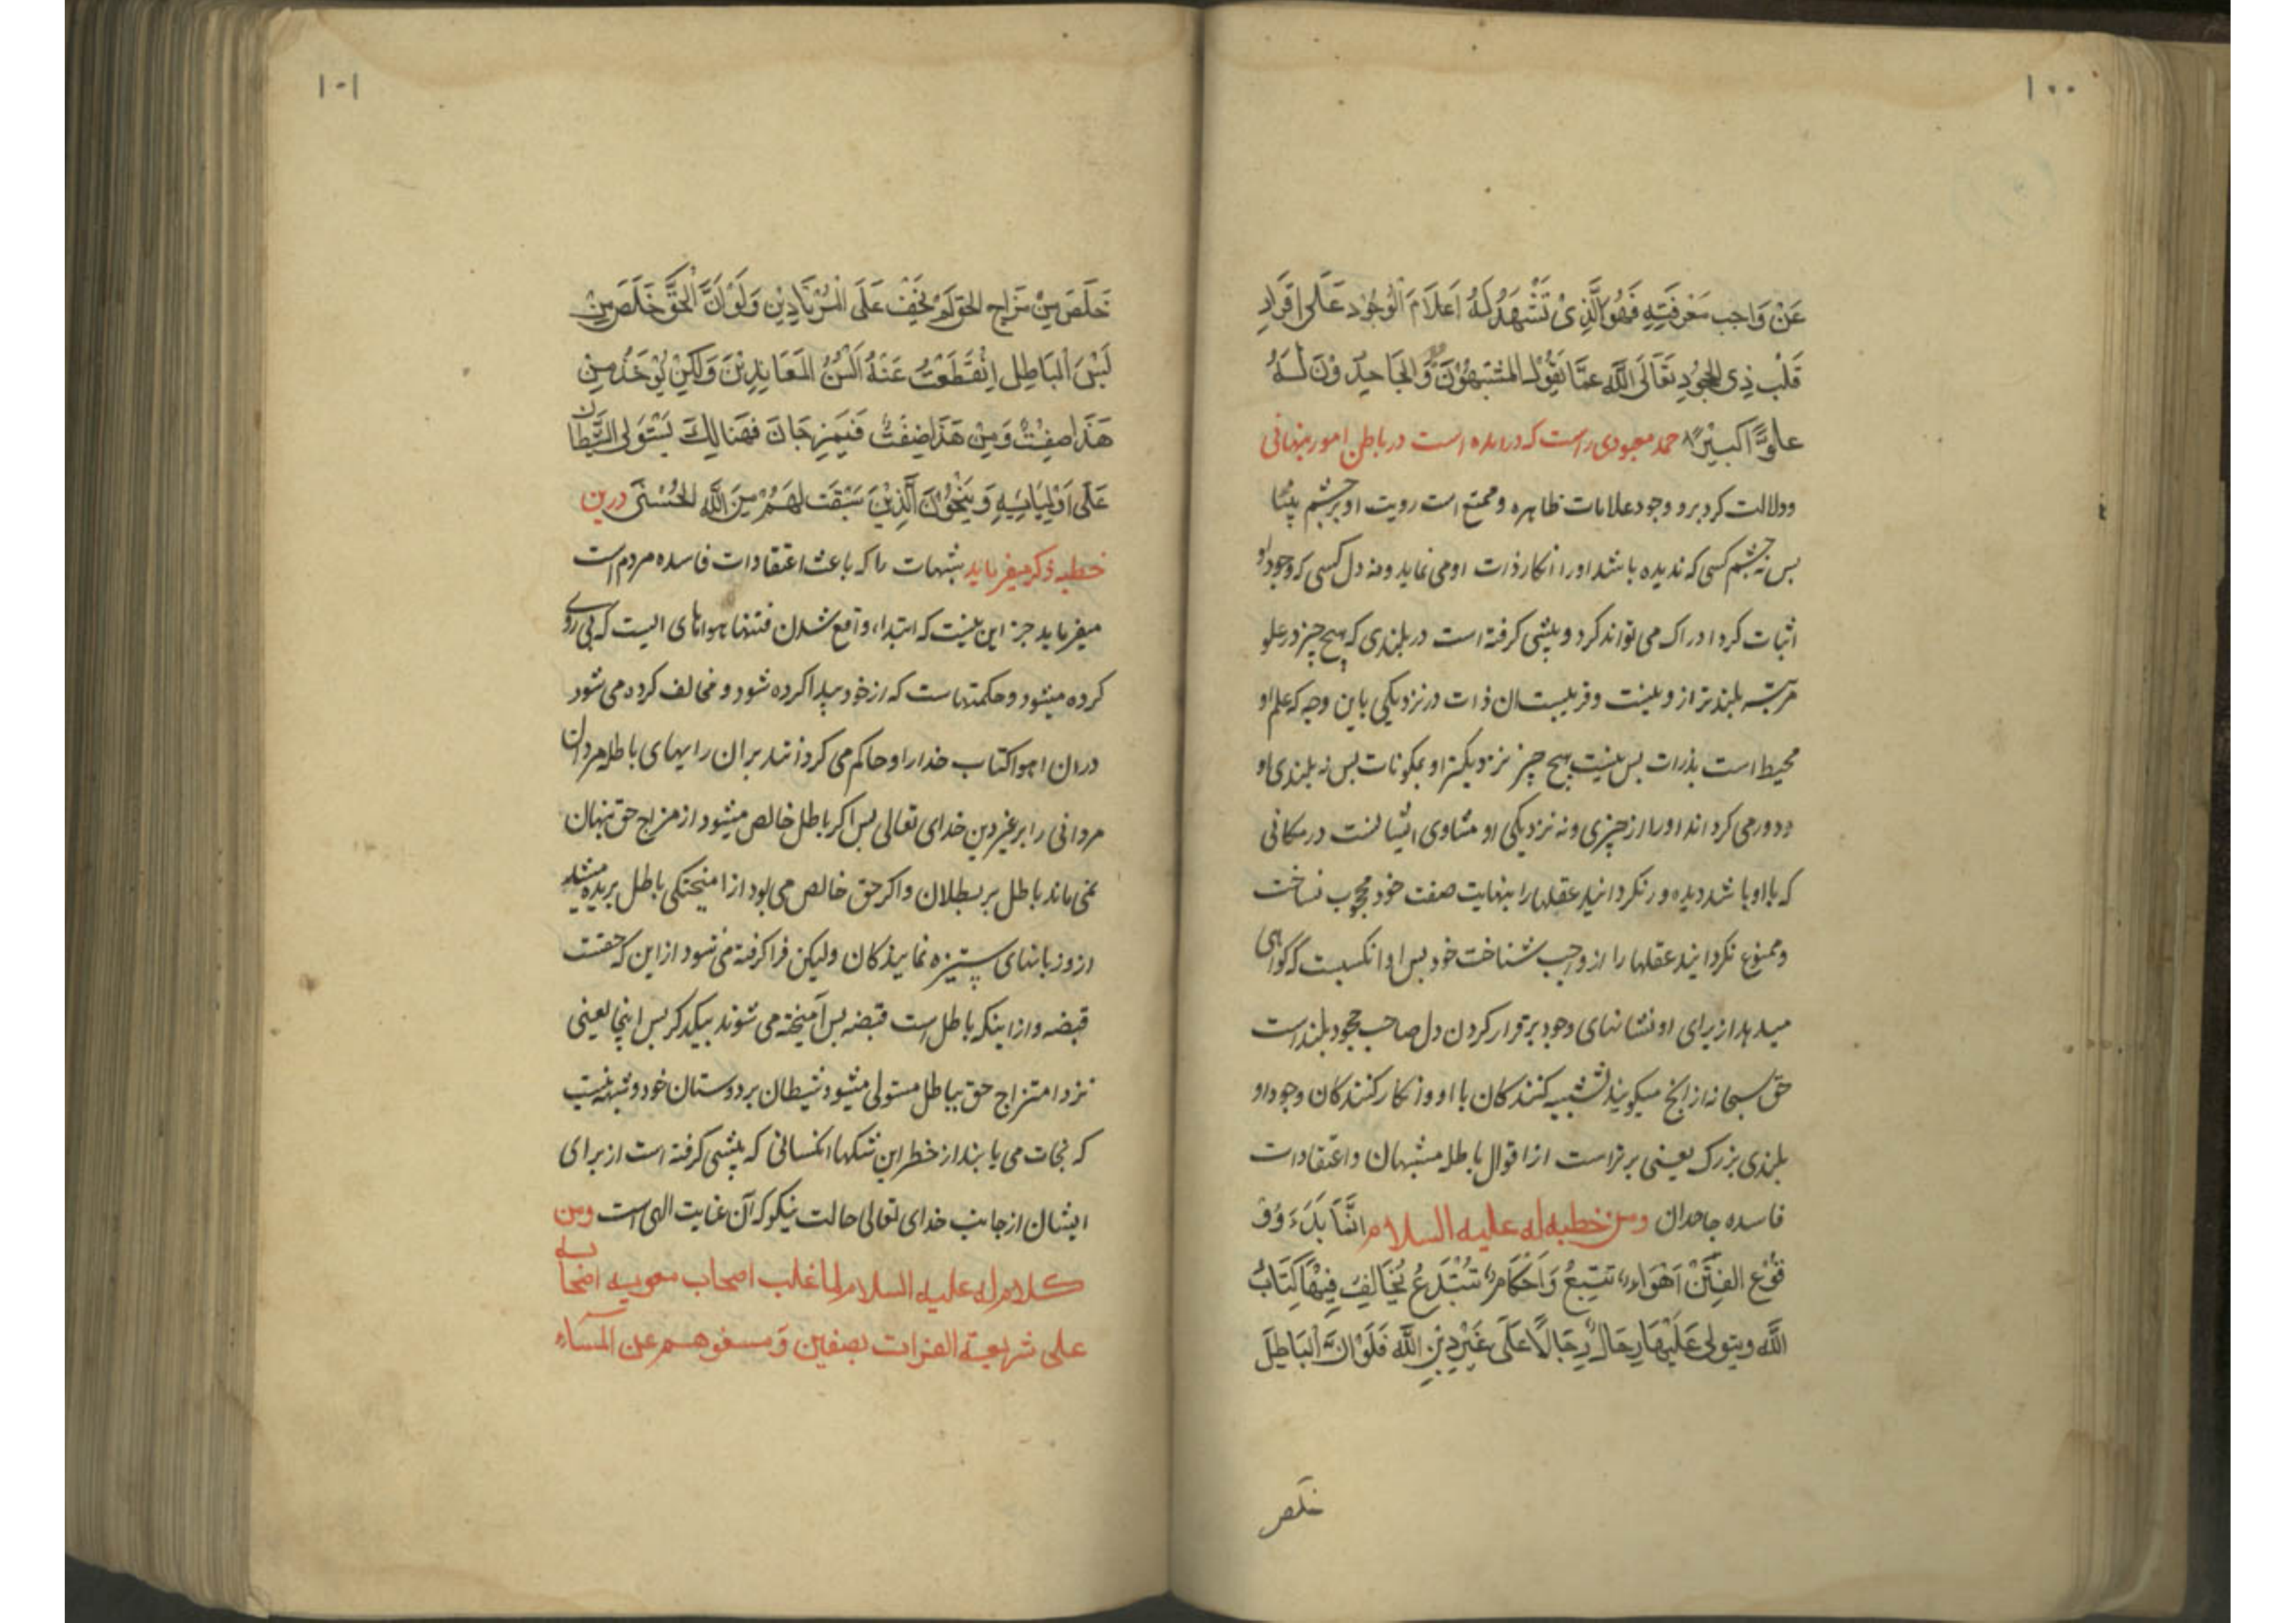 ۱۰۰
عَنْ وَاجِبِ مَعْرِفَتِهِ فَهُوَ الَّذِىْ تَشْهَدُ لَهُ اَعْلَامُ الْوُجُوْدِ عَلٰى اِقْرَارِ
قَلْبِ ذِى الْجُحُوْدِ تَعَالَى اللّٰه عَمَّا يَقُوْلُ المُشَبِّهُوْنَ وَ الْجَاحِدُوْنَ لَهُ
علوًّا كَبِيْرًا حمد معبودی راست که درامده است در باطن امور پنهانی
ودلالت کرد برو وجود علامات ظاهره و ممتنع است رویت او بر چشم بینا
بس نه چشم کسی که ندیده باشد اورا انکار ذات او می نماید ونه دل کسی که وجود او
اثبات کرد ادراک می تواند کرد و پیشی کرفته است در بلندی که هیچ چیز در علو
مرتبه بلندتر از و نیست و قریبست ان ذات در نزدیکی باین وجه که علم او
محیط است بذرات بس نیست هیچ چیز نزدیکتر او بمکونات بس نه بلندی او
دور می کرداند اورا از چیزی ونه نزدیکی او مساوی ایشانست در مکانی
که با او باشد دیده ور نکردانید عقلها را بنهایت صفت خود محجوب نساخت
و ممنوع نکردانید عقلها را از واجب شناخت خود بس او انکسیست که کواهی
میدهد از برای او نشانهای وجود بر قرار کردن دل صاحب جحود بلند است
حق سبحانه از انچ میکویند تشبیه کنندکان با او و انکار کنندکان وجود او
بلندی بزرک یعنی برتراست از اقوال باطله مشبهان و اعتقادات
فاسده جاحدان ومن خطبه له علیه السلام اِنَّمَا بَدْءُ وُقُ
قُوْعِ الفِتَنْ اَهْوَاءٌ تتّبَعُ وَاَحْكَامٌ تُبْتَدَعُ يُخَالَفُ فِيْهَا كِتَابُ
اللّٰه ويتولى عَلَيْهَا رِجَالٌ رِجَالًا عَلَى غَيْرِ دِيْنِ اللّٰه فَلَوْ اَنَّ الْبَاطِلَ
خلص
۱۰۱
خَلَصَ مِنْ مِزَاجِ الحَقِّ لَمْ يَخْفَ عَلَى الْمُرْتَادِيْنِ وَلَوْ اَنَّ الْحَقَّ خَلَصَ مِنْ
لَبْسِ الْبَاطِلِ اِنْقَطَعَتْ عَنْهُ اَلْسُنُ الْمُعَانِدِيْنَ وَلٰكِنْ يُؤْخَذُ مِنْ
هَذَا ضِغْثٌ وَمِنْ هَذَا ضِغْثٌ فَيَمْزِجَانَ فَهُنَالِكَ يَسْتَوْلِى الشَّيْطَانُ
عَلَى اَوْلِيَائِهِ وَ يَنْجُوْنَ الَّذِيْنَ سَبَقَتْ لَهُمْ مِنَ اللّٰه الْحُسْنٰى درین
خطبه ذکر میفرماید شبهات را که باعث اعتقادات فاسده مردم است
میفرماید جز این نیست که ابتداء واقع شدن فتنها هواهای ایست که پی روی
کرده میشود و حکمتهاست که از خود پیدا کرده شود و مخالف کرده می شود
دران اهوا کتاب خدا را و حاکم می کردانند بران رایهای باطل مردان
مردانی را بر غیر دین خدای تعالی بس اکر باطل خالص میشود از مزاج حق پنهان
نمی ماند باطل بر بطلان و اکر حق خالص می بود از امیختکی باطل بریده میشد
از و زبانهای ستیزه نمایندکان ولیکن فرا کرفته می شود از این که حقست
قبضه و از اینکه باطل است قبضه بس آمیخته می شوند بیکدکر بس اینجا یعنی
نزد امتزاج حق بباطل مستولی میشود شیطان بر دوستان خود و شبهه نیست
که نجات می یابند از خطر این شکها انکسانی که پیشی کرفته است از برای
ایشان از جانب خدای تعالی حالت نیکو که آن عنایت الهی است ومن
کلام له علیه السلام لما غلب اصحاب معویه اصحابه
على شريعة الفرات بصفين وَمنعوهم عن المَآء